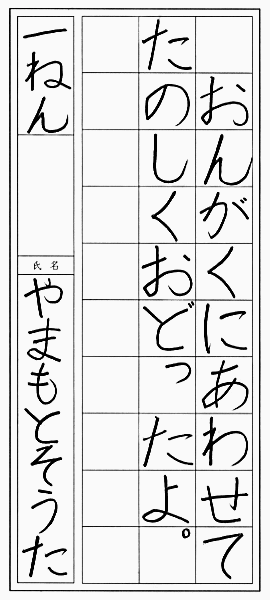 おんがくにあわせて
たのしくおどったよ。
一ねん
氏名
やまもとそうた